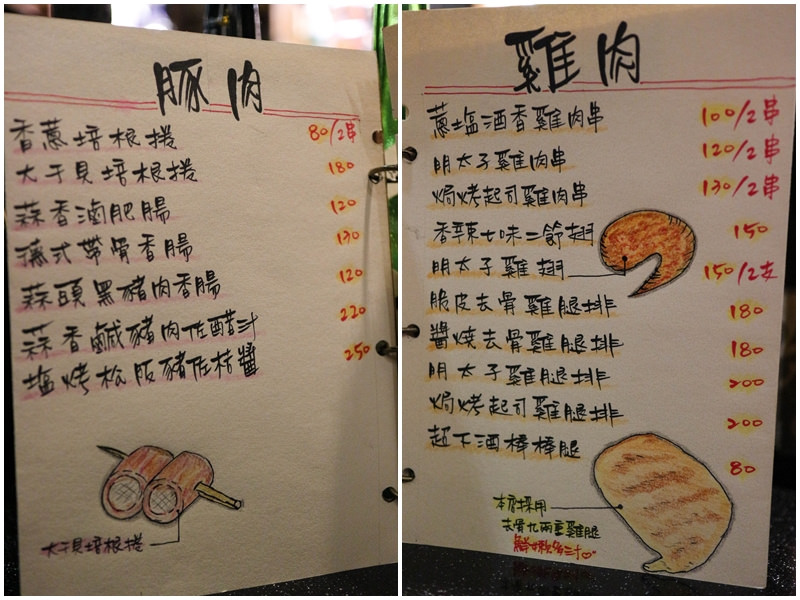 豚肉
香蔥培根捲 80/2串
大干貝培根捲 180
蒜香滷肥腸 120
德式帶骨香腸 130
蒜頭黑豬肉香腸 120
蒜香鹹豬肉佐醋汁 220
塩烤松阪豬佐桔醬 250
大干貝培根捲
雞肉
蔥塩酒香雞肉串 100/2串
明太子雞肉串 120/2串
焗烤起司雞肉串 130/2串
香辛辣七味二節翅 150
明太子雞翅 150/2支
脆皮去骨雞腿排 180
醬燒去骨雞腿排 180
明太子雞腿排 200
焗烤起司雞腿排 200
超下酒棒棒腿 80
本店採用
去骨九兩重雞腿
鮮嫩多汁